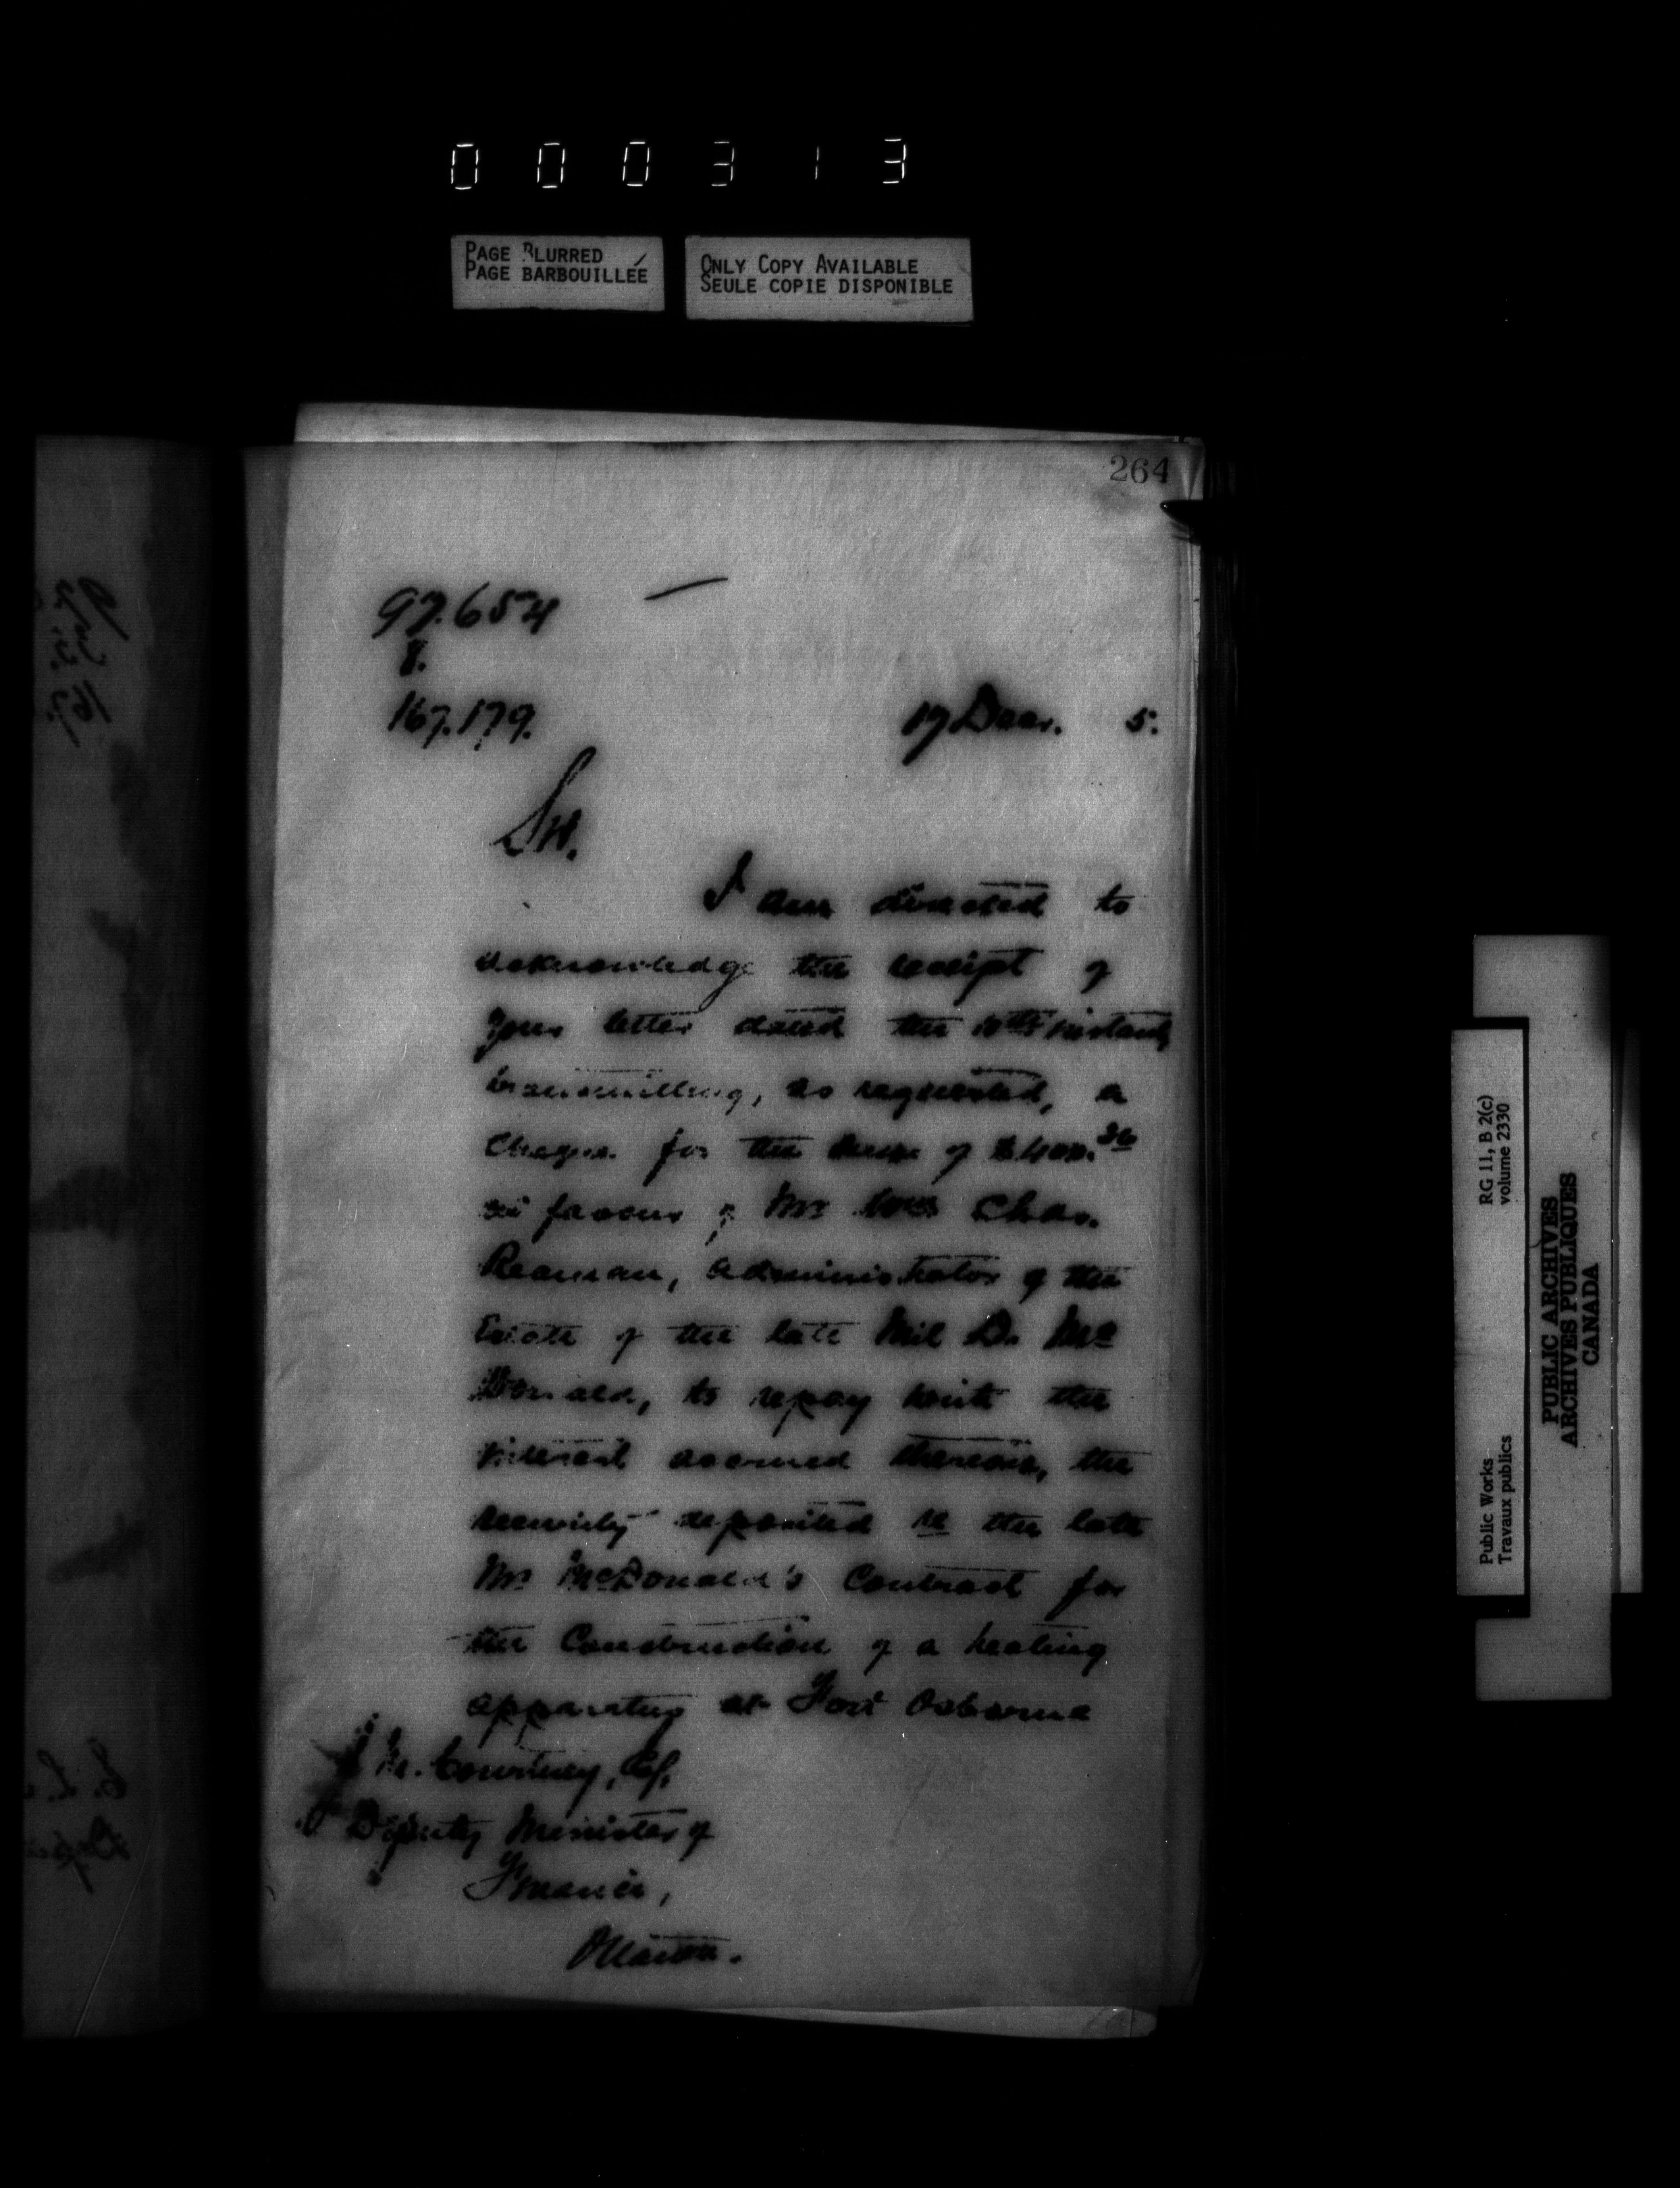 0 0 0 3 1 3
PAGE BLURRED
PAGE BARBOUILLÉE
ONLY COPY AVAILABLE
SEULE COPIE DISPONIBLE
264
97.654
8.
167.179.
19 Decr. 5.
Sir.
I am directed to
acknowledge the receipt of
your letter dated the instant,
transmitting, as requested, a
cheque for the sum of
in favour of Mr Chas.
administrator of the
Estate of the late Neil D. Mc
Donald, to repay with the
interest accrued thereon, the
security deposited re the late
Mr McDonald's Contract for
the Construction of a heating
apparatus at Fort Osborne
J. M. Courtney, Esq.
Deputy Minister of
Finance,
Ottawa.
RG 11, B 2(c)
volume 2330
Public Works
Travaux publics
PUBLIC ARCHIVES
ARCHIVES PUBLIQUES
CANADA